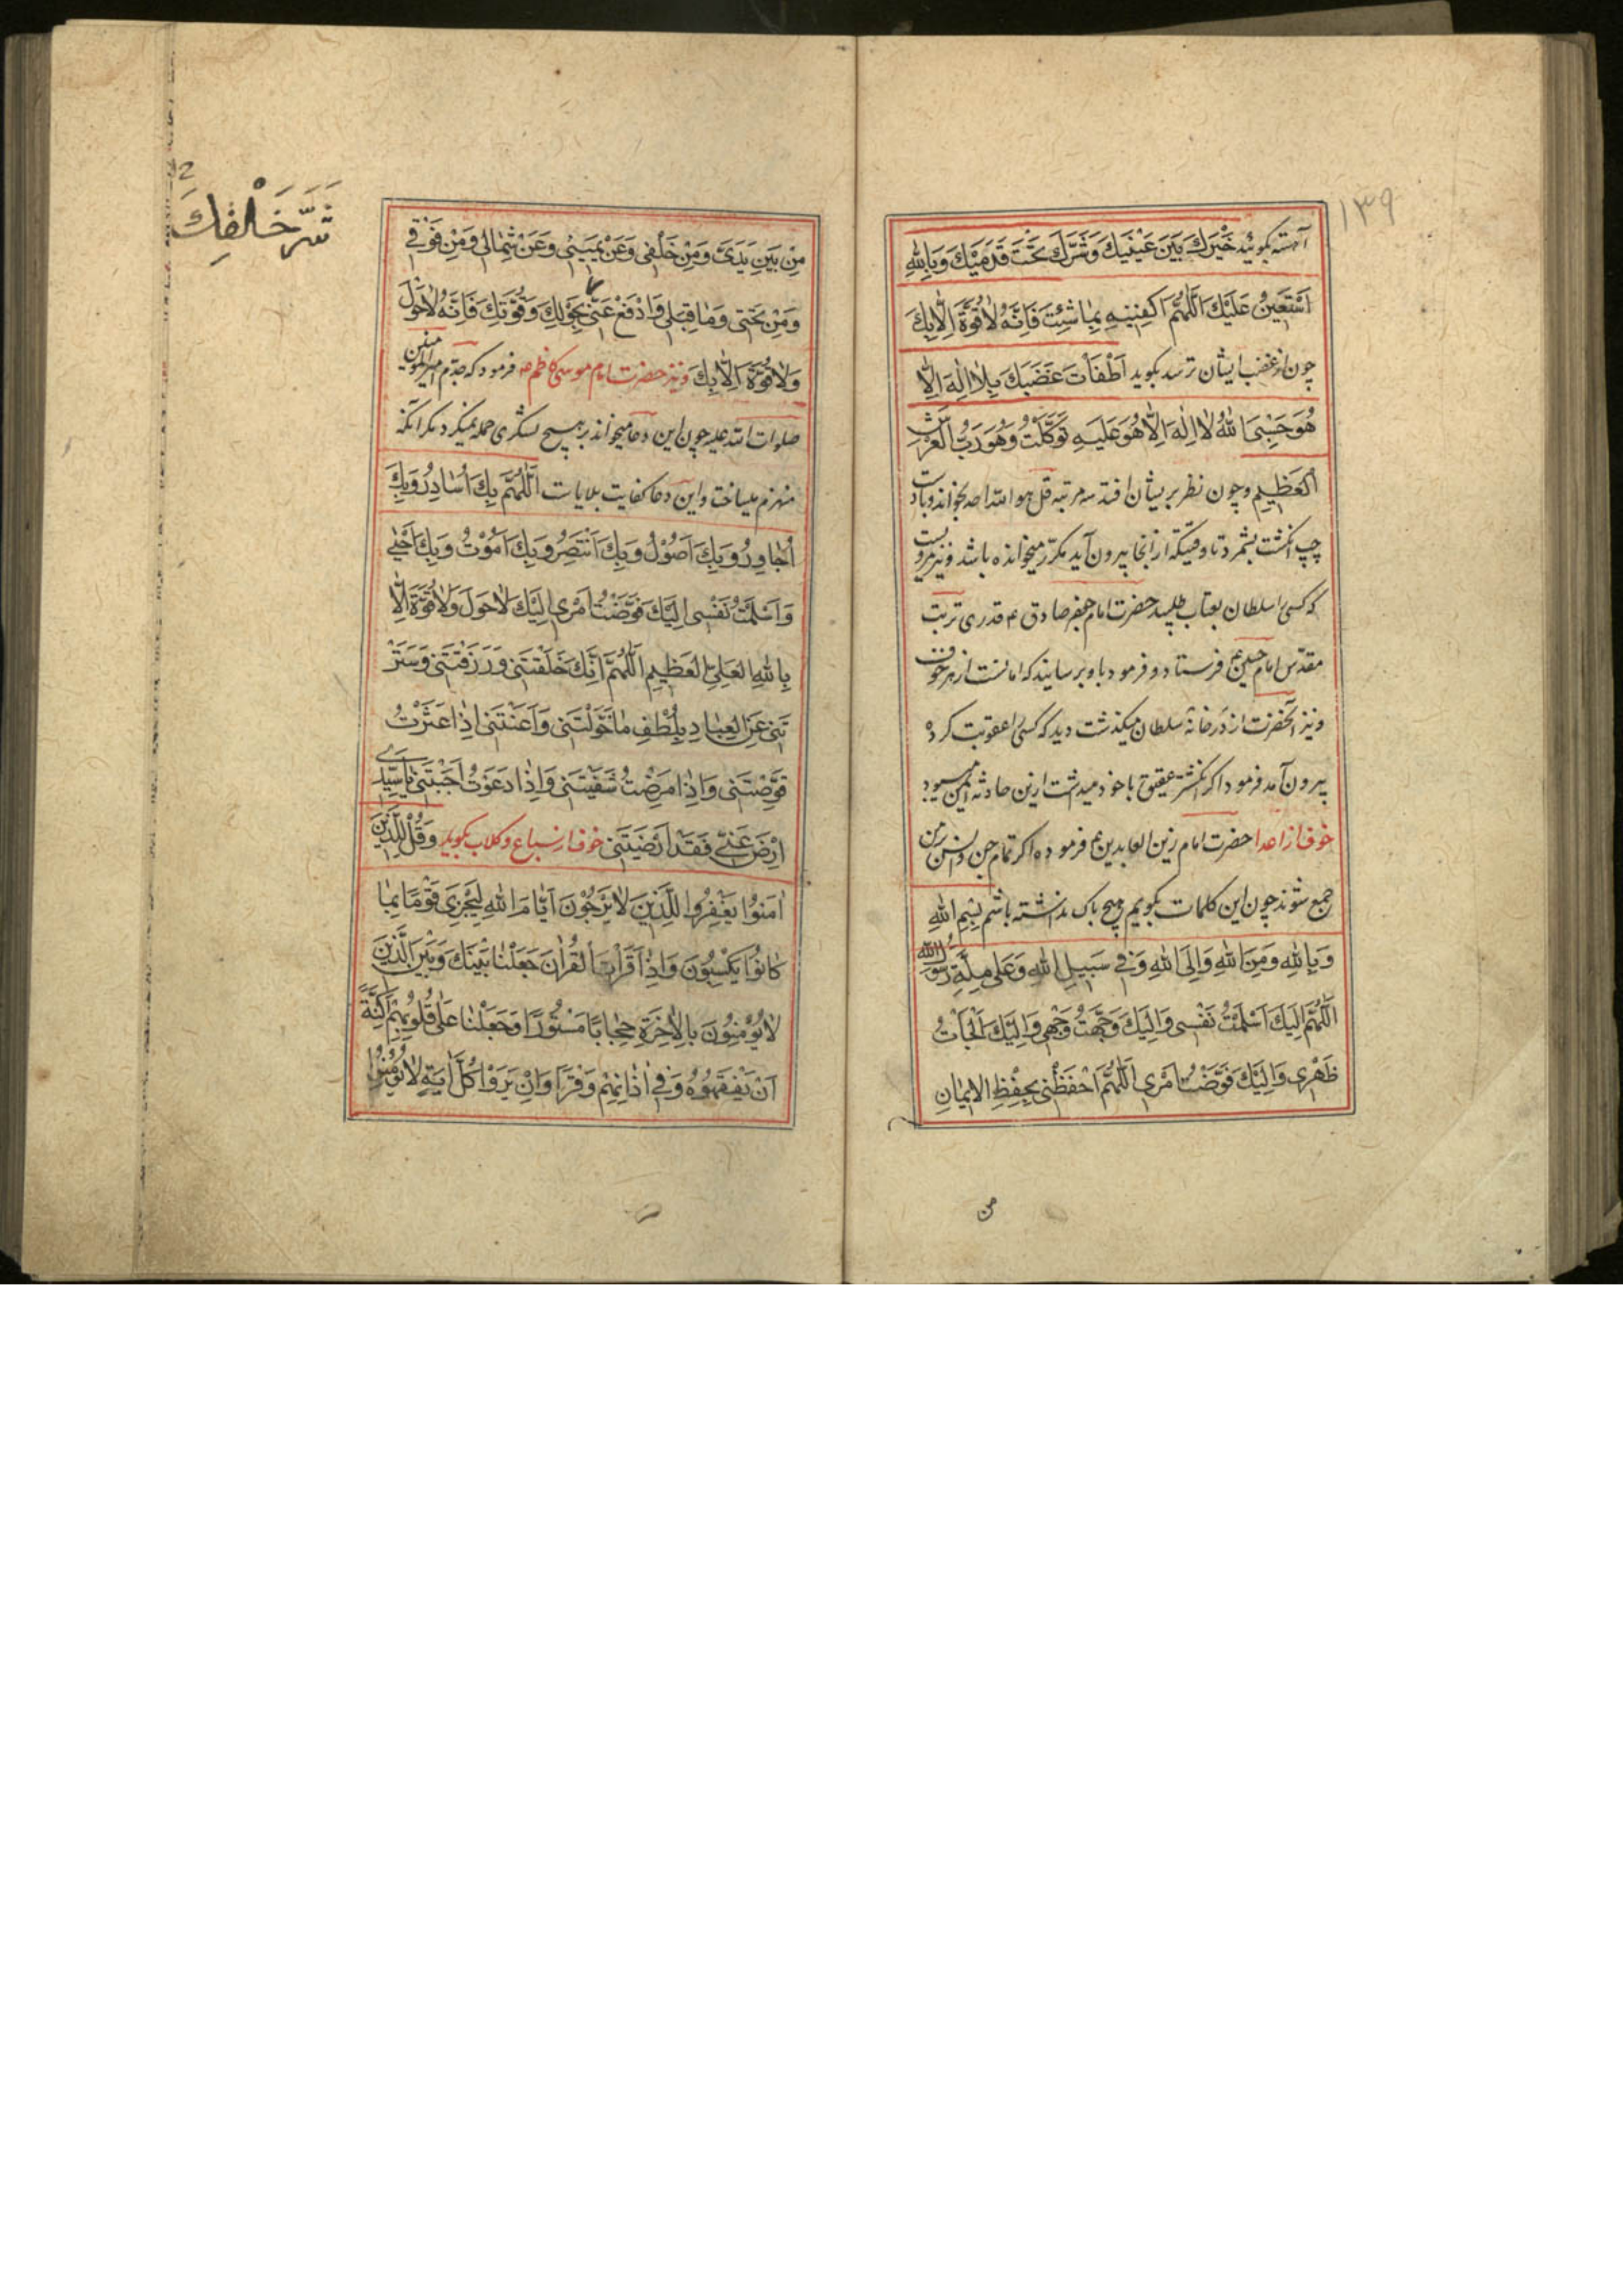 ۱۳۹
آهسته بکوید خَيْرُكَ بَيْنَ عَيْنَيْكَ وَشَرُّكَ تَحْتَ قَدَمَيْكَ وَبِاللهِ
اَسْتَعِينُ عَلَيْكَ اَللّٰهُمَّ اكْفِنِيهِ بِمَا شِئْتَ فَاِنَّهُ لَا قُوَّةَ اِلَّا بِكَ
چون از غضب ایشان ترسد بکوید اَطْفَأْتَ غَضَبَكَ بِلَا اِلٰهَ اِلَّا
هُوَ حَسْبِيَ اللهُ لَا اِلٰهَ اِلَّا هُوَ عَلَيْهِ تَوَكَّلْتُ وَهُوَ رَبُّ الْعَرْشِ
الْعَظِيمِ و چون نظر بر یشان افتد سه مرتبه قل هو الله احد بخواند و با دست
چپ انکشت بشمرد تا وقتیکه از آنجا بیرون آید مکرّر میخوانده باشد و نیز مرویست
که کسی را سلطان بعتاب طلبید حضرت امام جعفر صادق ع قدری تربت
مقدّس امام حسین ع فرستاد و فرمود باو برسانید که امانست از هر خوف
و نیز آنحضرت از در خانهٔ سلطان میکذشت دید که کسی را عقوبت کرده
بیرون آمد فرمود اکر انکشتر عقیق با خود میداشت ازین حادثه ایمن میبود
خوف از اعدا حضرت امام زین العابدین ع فرموده اکر تمام جن و انس بر من
جمع شوند چون این کلمات بکویم هیچ باک نداشته باشم بِسْمِ اللهِ
وَبِاللهِ وَمِنَ اللهِ وَاِلَى اللهِ وَفِي سَبِيلِ اللهِ وَعَلٰى مِلَّةِ رَسُولِ اللهِ
اَللّٰهُمَّ اِلَيْكَ اَسْلَمْتُ نَفْسِي وَاِلَيْكَ وَجَّهْتُ وَجْهِي وَاِلَيْكَ اَلْجَأْتُ
ظَهْرِي وَاِلَيْكَ فَوَّضْتُ اَمْرِي اَللّٰهُمَّ احْفَظْنِي بِحِفْظِ الْاِيمَانِ
من
مِنْ بَيْنِ يَدَيَّ وَمِنْ خَلْفِي وَعَنْ يَمِينِي وَعَنْ شِمَالِي وَمِنْ فَوْقِي
وَمِنْ تَحْتِي وَمَا قِبَلِي وَادْفَعْ عَنِّي بِحَوْلِكَ وَقُوَّتِكَ فَاِنَّهُ لَا حَوْلَ
وَلَا قُوَّةَ اِلَّا بِكَ و نیز حضرت امام موسی کاظم ع فرمود که جدّم امیر المؤمنین
صلوات الله علیه چون این دعا میخواند بر هیچ لشکری حمله نمیکرد مکر آنکه
منهزم میساخت و این دعا کفایت بلایاست اَللّٰهُمَّ بِكَ اُسَاوِرُ وَبِكَ
اُجَاوِرُ وَبِكَ اَصُوْلُ وَبِكَ اَنْتَصِرُ وَبِكَ اَمُوْتُ وَبِكَ اَحْيٰى
وَاَسْلَمْتُ نَفْسِي اِلَيْكَ فَوَّضْتُ اَمْرِي اِلَيْكَ لَا حَوْلَ وَلَا قُوَّةَ اِلَّا
بِاللهِ الْعَلِيِّ الْعَظِيمِ اَللّٰهُمَّ اِنَّكَ خَلَقْتَنِي وَرَزَقْتَنِي وَسَتَرْ
تَنِي عَنِ الْعِبَادِ بِلُطْفِ مَا خَوَّلْتَنِي وَاَعَنْتَنِي اِذَا عَثَرْتُ
قَوَّمْتَنِي وَاِذَا مَرِضْتُ شَفَيْتَنِي وَاِذَا دَعَوْتُ اَجَبْتَنِي يَا سَيِّدِي
ارْضَ عَنِّي فَقَدْ اَرْضَيْتَنِي خوف از سباع و کلاب بکوید وَقُلْ لِلَّذِينَ
اٰمَنُوا يَغْفِرُوا لِلَّذِينَ لَا يَرْجُوْنَ اَيَّامَ اللهِ لِيَجْزِيَ قَوْمًا بِمَا
كَانُوا يَكْسِبُوْنَ وَاِذَا قَرَأْتَ الْقُرْاٰنَ جَعَلْنَا بَيْنَكَ وَبَيْنَ الَّذِينَ
لَا يُؤْمِنُوْنَ بِالْاٰخِرَةِ حِجَابًا مَسْتُوْرًا وَجَعَلْنَا عَلٰى قُلُوْبِهِمْ اَكِنَّةً
اَنْ يَفْقَهُوْهُ وَفِي اٰذَانِهِمْ وَقْرًا وَاِنْ يَرَوْا كُلَّ اٰيَةٍ لَا يُؤْمِنُوْا
شَرِّ خَلْقِكَ